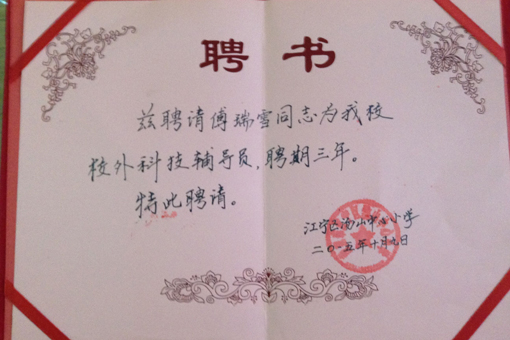 聘书
兹聘请傅瑞雪同志为我校
校外科技辅导员,聘期三年。
特此聘请。
江宁区汤山中心小学
二〇一五年十月九日